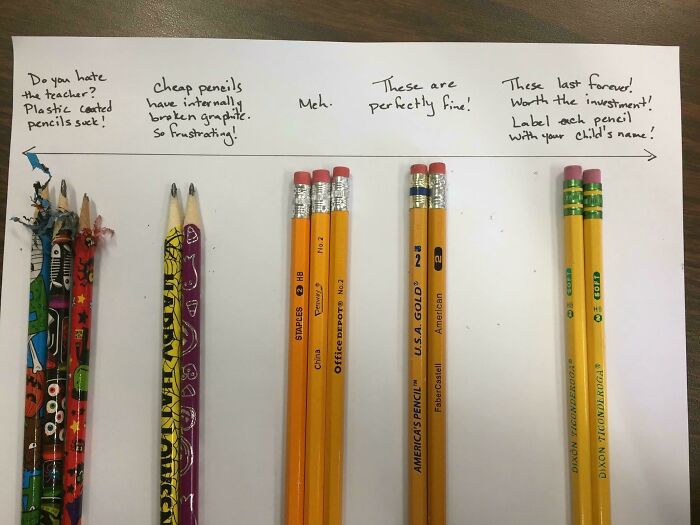 Do you hate
the teacher?
Plastic coated
pencils suck!
Cheap pencils
have internally
broken graphite.
So frustrating!
Meh.
These are
perfectly fine!
These last forever!
Worth the investment!
Label each pencil
with your child's name!
STAPLES 2 HB
China Penway® No.2
Office DEPOT® No.2
AMERICA'S PENCIL™ U.S.A. GOLD® 2
FaberCastell American 2
DIXON TICONDEROGA® SOFT
DIXON TICONDEROGA® SOFT